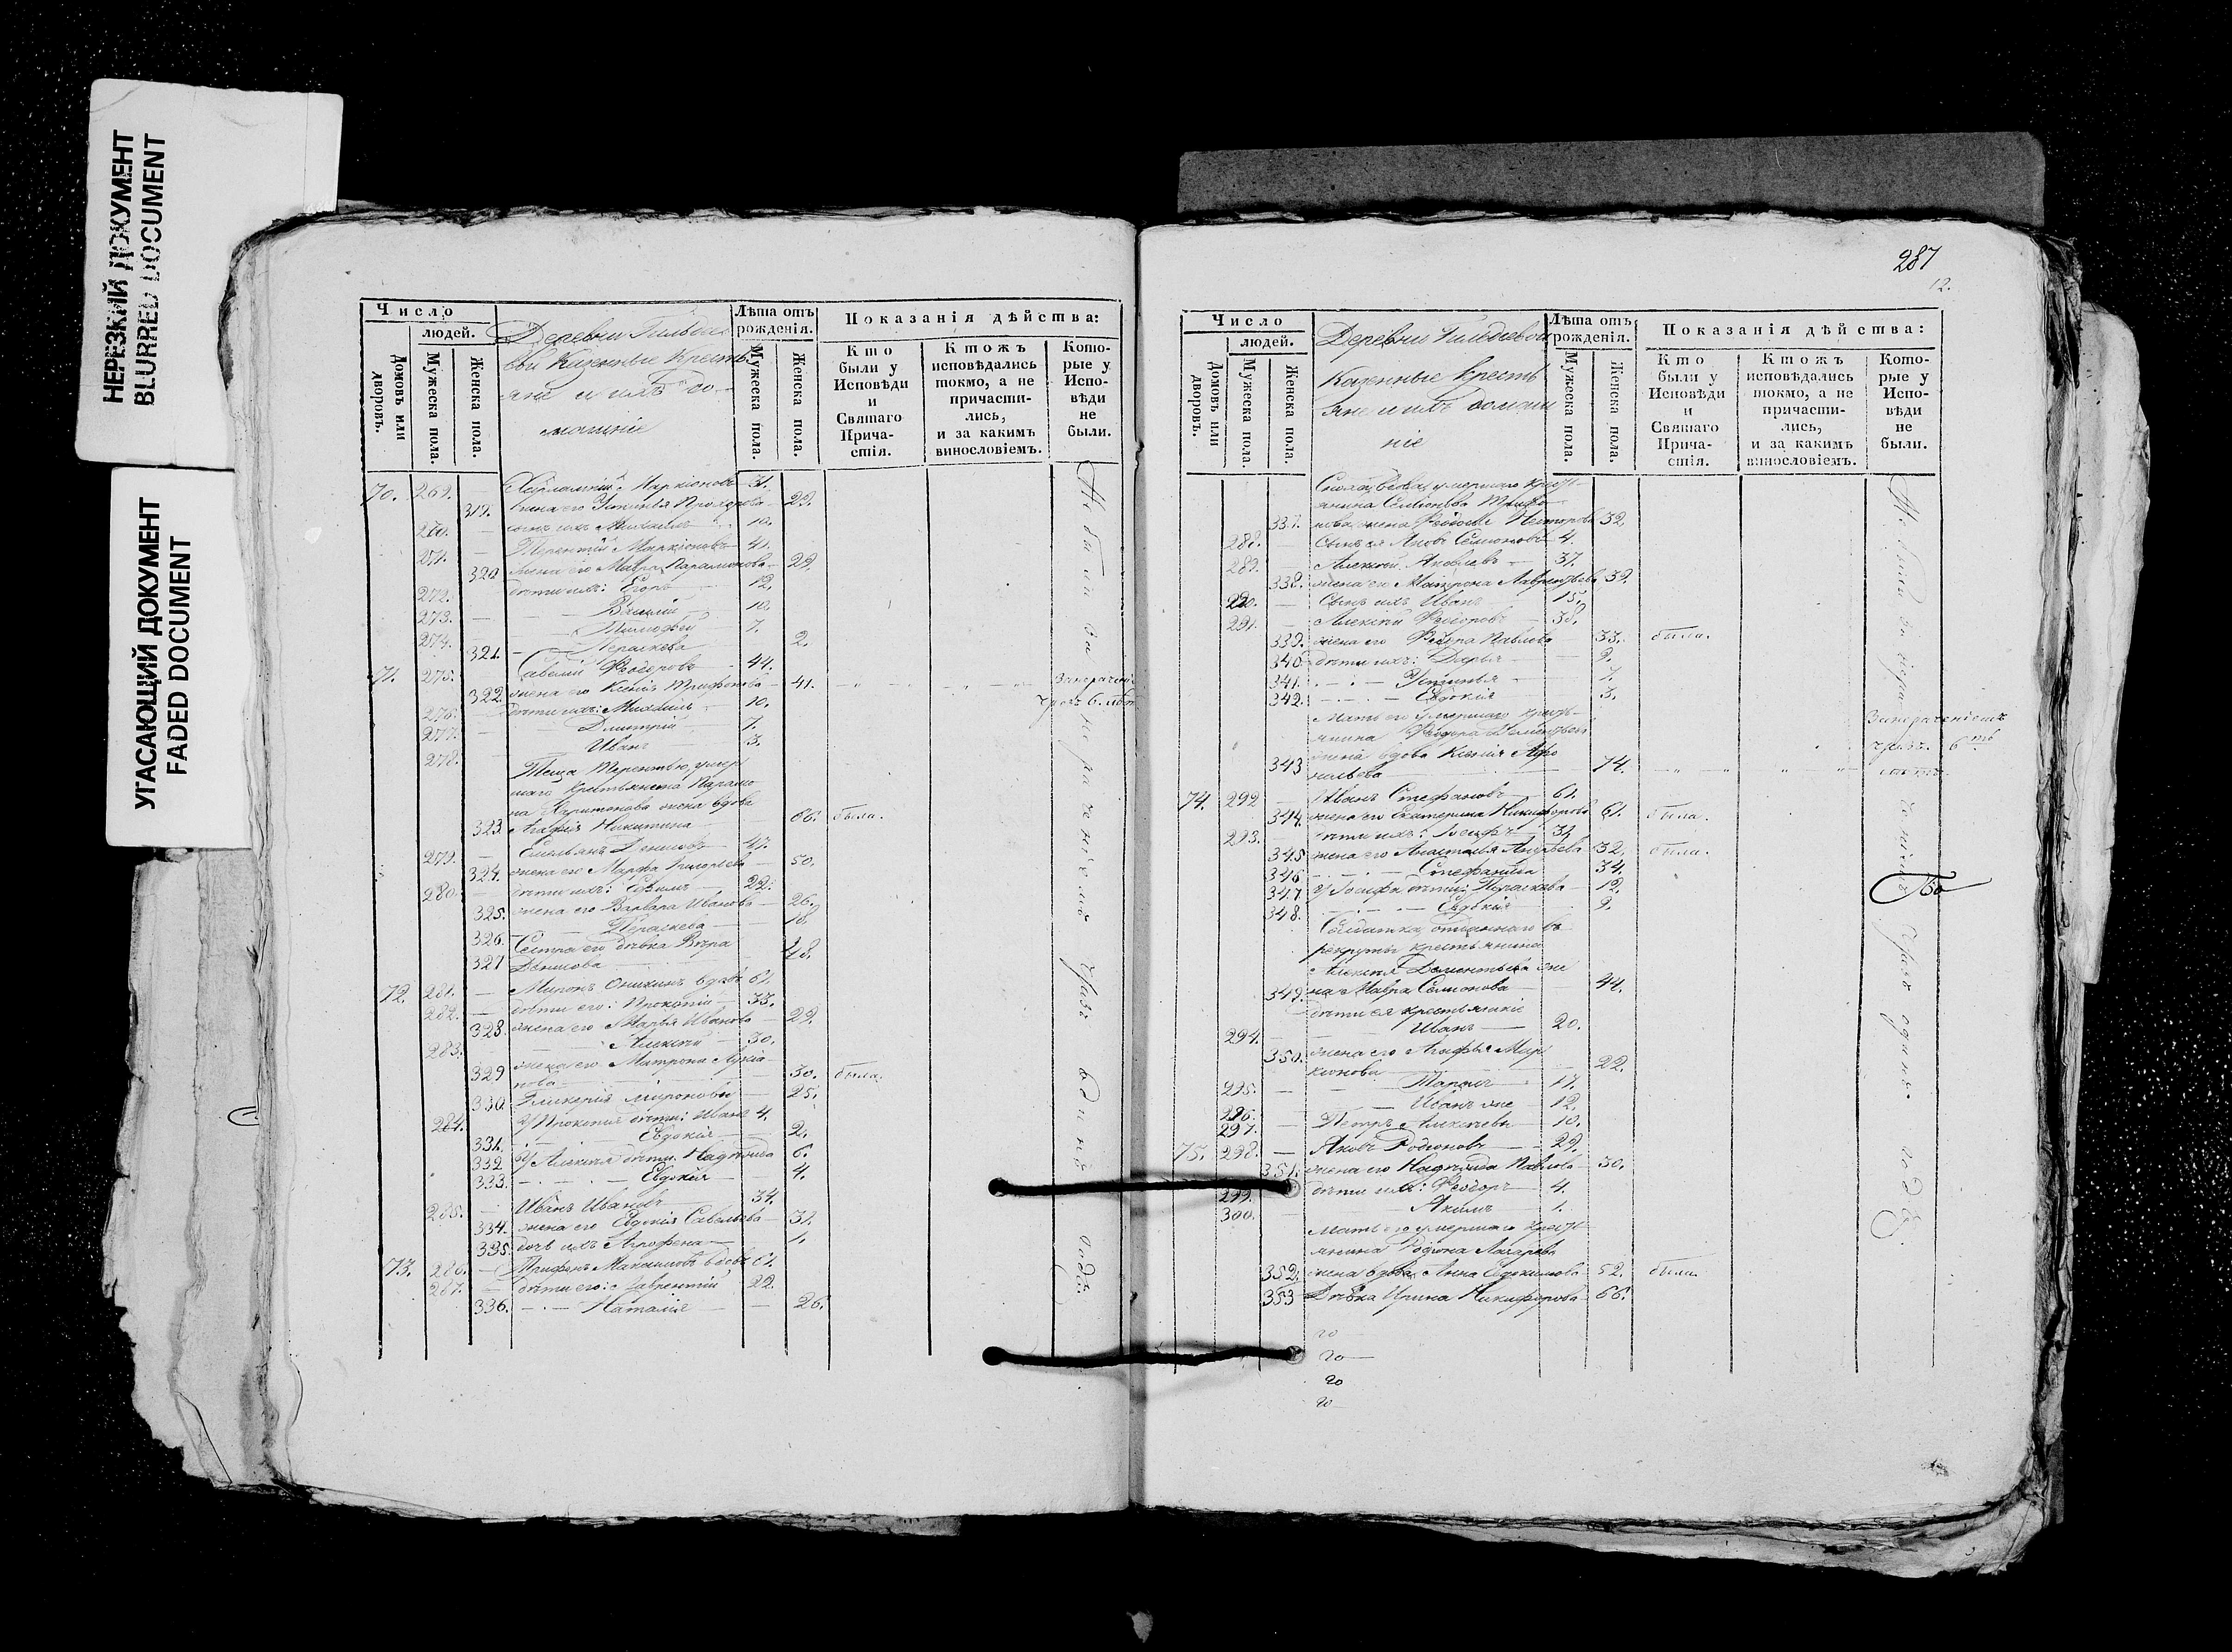 НЕРЕЗКИЙ ДОКУМЕНТ
BLURRED DOCUMENT
УГАСАЮЩИЙ ДОКУМЕНТ
FADED DOCUMENT
Число
людей.
Домовъ или дворовъ.
Мужеска пола.
Женска пола.
Деревни
Казенные кресть
яне и ихъ до-
машніе
Лѣта отъ рожденія.
Мужеска пола.
Женска пола.
Показанія дѣйства:
Кто были у Исповѣди и Святаго Причастія.
Ктожъ исповѣдались токмо, а не причастились, и за какимъ винословіемъ.
Которые у Исповѣди не были.
70. 269. Харлампій Маркіоновъ 31.
319. жена его Устинья Прохорова 29.
270. сынъ ихъ Михаилъ 10.
271. Терентій Маркіоновъ 41.
320 жена его Мавра Парамонова 29.
272. дѣти ихъ: Егоръ 12.
273. Василій 10.
274. Тимофей 7.
321. Параскева 2.
71. 275. Савелій Феодоровъ 44.
322. жена его Ксенія Трифонова 41.
276. дѣти ихъ: Михаилъ 10.
277. Дмитрій 7.
278. Иванъ 3.
Теща Терентью, умер
шаго крестьянина Парамо
на Харитонова жена вдова
323. Агафія Никитина 66. была.
279. Емельянъ Денисовъ 47.
324. жена его Марфа Григорьева 50.
280. дѣти ихъ: Ефимъ 22.
325. жена его Варвара Иванова 26.
326. Параскева 18.
Сестра его дѣвка Вѣра
327 Денисова 48.
72. 281. Миронъ Оникинъ вдовъ 61.
282. дѣти его: Прокопій 33.
328. жена его Марья Иванова 29.
283. Алексѣй 30.
жена его Матрона Лукіа-
329 нова 30. была.
330. Гликерія Миронова 25.
284. У Прокопія дѣти: Иванъ 4.
331. Евдокія 2.
332 У Алексѣя дѣти: Надежда 6.
333. Евдокія 4.
285. Иванъ Ивановъ 34.
334. жена его Евдокія Савельева 31.
335. дочь ихъ Агрофена 1.
73. 286. Трифонъ Максимовъ вдовъ 61.
287. дѣти его: Лаврентій 22.
336. Наталія 26.
Не были за нераченіемъ чрезъ одинъ годъ.
287
12.
Число
людей.
Домовъ или дворовъ.
Мужеска пола.
Женска пола.
Деревни
Казенные кресть
яне и ихъ домаш
ніе
Лѣта отъ рожденія.
Мужеска пола.
Женска пола.
Показанія дѣйства:
Кто были у Исповѣди и Святаго Причастія.
Ктожъ исповѣдались токмо, а не причастились, и за какимъ винословіемъ.
Которые у Исповѣди не были.
умершаго кресть-
янина Семіонова Трифо-
337. нова жена Феодосья Нестерова 32
288. Сынъ ея Яковъ Семіоновъ 4.
289. Алексѣй Яковлевъ 37.
338. жена его Матрона Лаврентьева 39.
290. Сынъ ихъ Иванъ 15.
291. Алексѣй Феодоровъ 38.
339. жена его Федора Павлова 33. была.
340 дѣти ихъ: Дарья 9.
341. Устинья 7.
342. Евдокія 3.
Мать его умершаго кресть-
янина Феодора
жена вдова Ксенія Афо
343 насьева 74.
74. 292 Иванъ Стефановъ 61.
344. жена его Екатерина Никифорова 61. была.
293. дѣти ихъ: Іосифъ 34
345 жена его Анастасья Андреева 32. была.
346 Стефанида 34.
347 У Іосифа дѣти: Параскева 12.
348. Евдокія 9.
Солдатка, отданнаго въ
рекруты крестьянина
Алексѣя Дементьева же
349. на Мавра Семіонова 44.
дѣти ея крестьянскіе
294. Иванъ 20.
жена его Агафья Мар
350. кіонова 22.
295. Тарасъ 17.
296. Иванъ же 12.
297. Петръ Алексѣевъ 10.
75. 298. Яковъ Родіоновъ 29.
351. жена его Надежда Павлова 30.
299. дѣти ихъ: Феодоръ 4.
300. Акимъ 1.
Мать его умершаго кресть
янина Родіона Лазарева
352. жена вдова Анна Евдокимова 52. была.
353 Дѣвка Ирина Никифорова 66.
Не были за нераченіемъ чрезъ одинъ годъ.